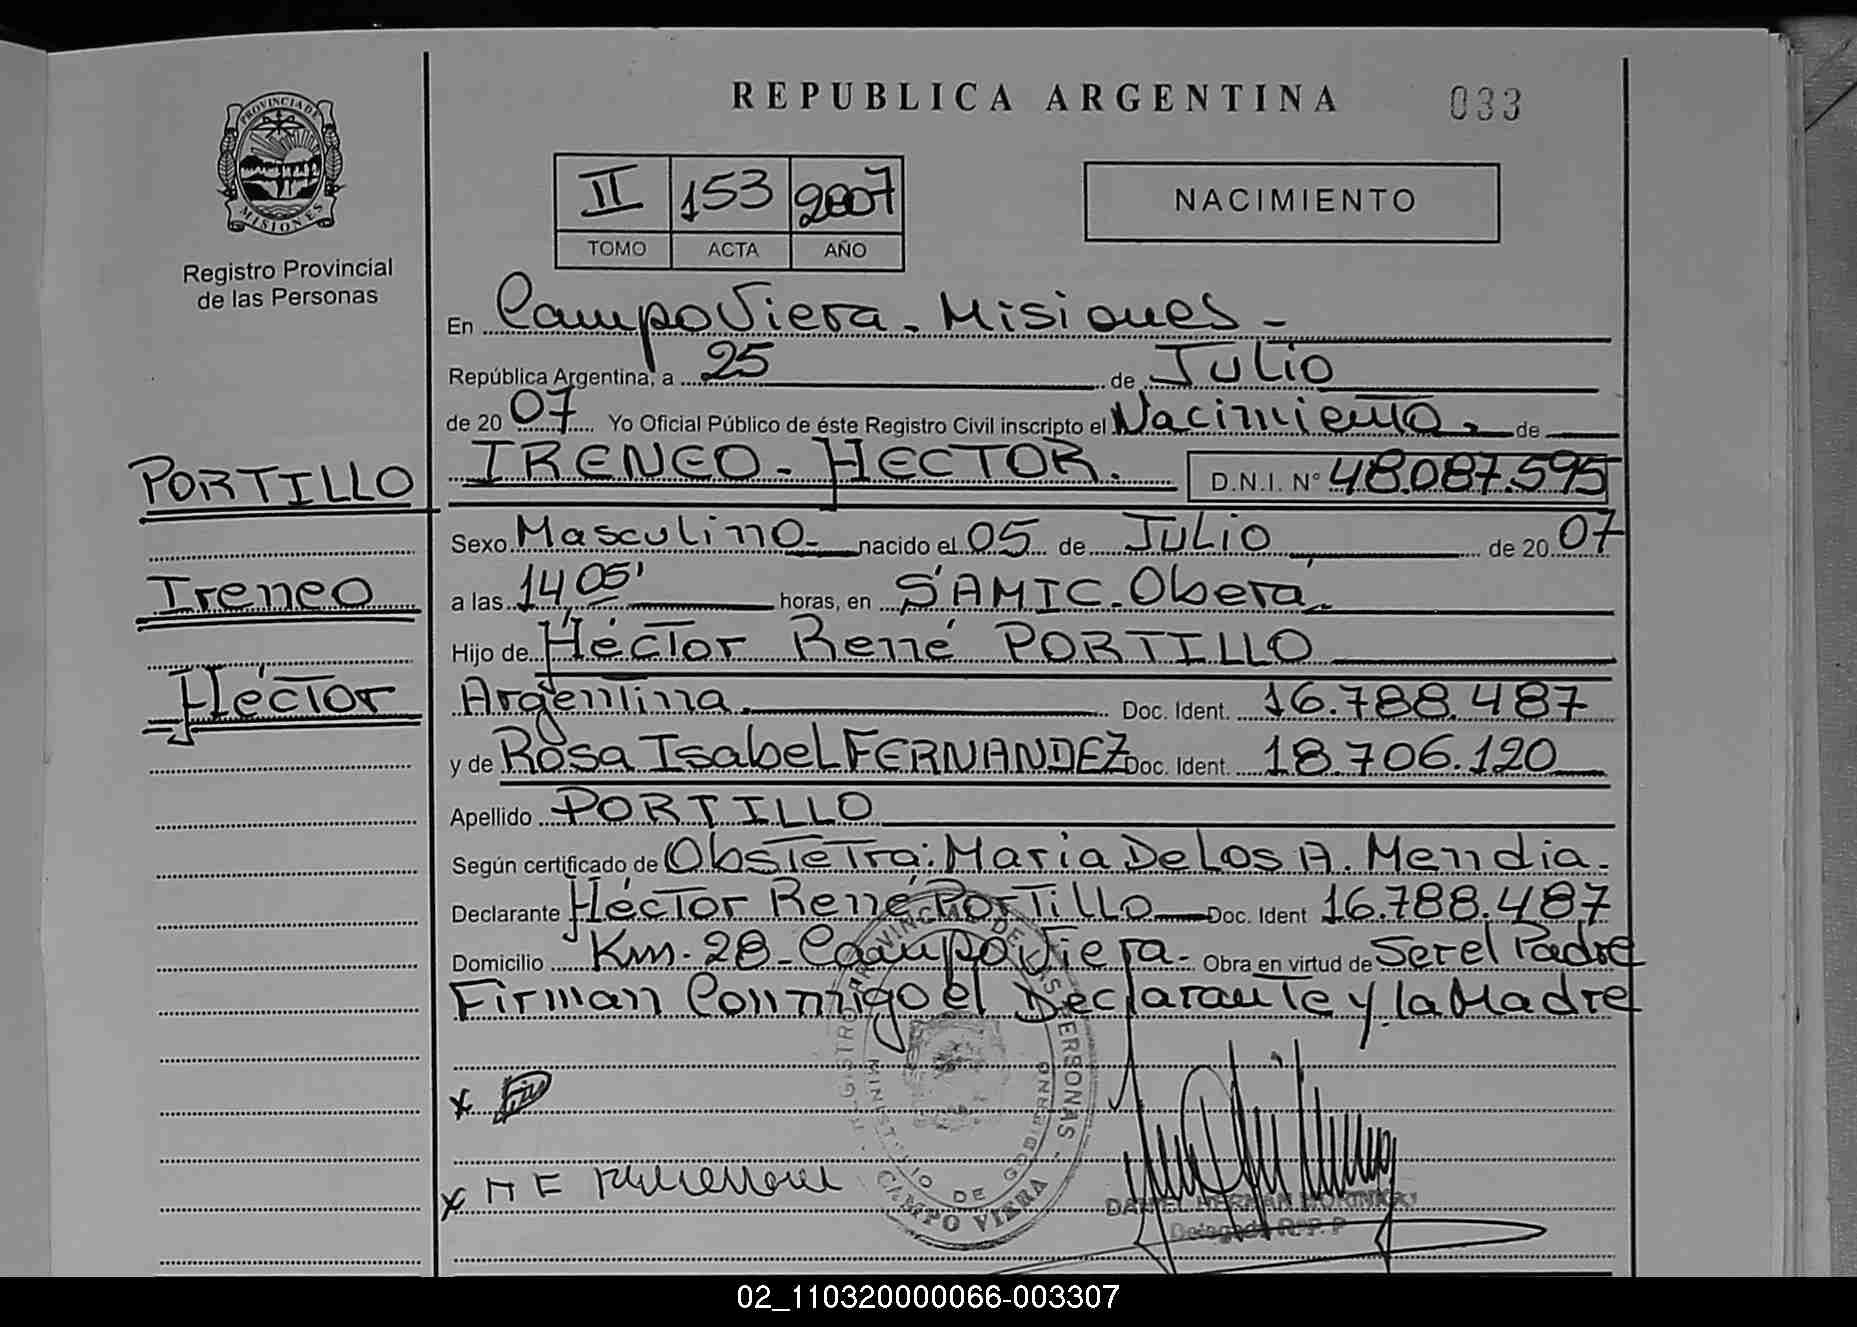 REPUBLICA ARGENTINA 033
PROVINCIA DE MISIONES
Registro Provincial
de las Personas
II 153 2007
TOMO ACTA AÑO
NACIMIENTO
En Campo Viera - Misiones -
República Argentina, a 25 de Julio
de 2007 Yo Oficial Público de éste Registro Civil inscripto el Nacimiento - de
IRENEO - HECTOR. D.N.I. N° 48.087.595
PORTILLO
Ireneo
Héctor
Sexo Masculino - nacido el 05 de Julio de 2007
a las 14,05' horas, en SAMIC - Oberá.
Hijo de Héctor René PORTILLO
Argentina. Doc. Ident. 16.788.487
y de Rosa Isabel FERNANDEZ Doc. Ident. 18.706.120
Apellido PORTILLO
Según certificado de Obstetra: Maria De Los A. Mendia -
Declarante Héctor René Portillo Doc. Ident 16.788.487
Domicilio Km. 28 - Campo Viera - Obra en virtud de Ser el Padre
Firman Conmigo el Declarante y la Madre
REGISTRO PROVINCIAL DE LAS PERSONAS
MINISTERIO DE GOBIERNO
CAMPO VIERA
x
x
DANIEL HERNAN
Delegado R.P.P
02_110320000066-003307